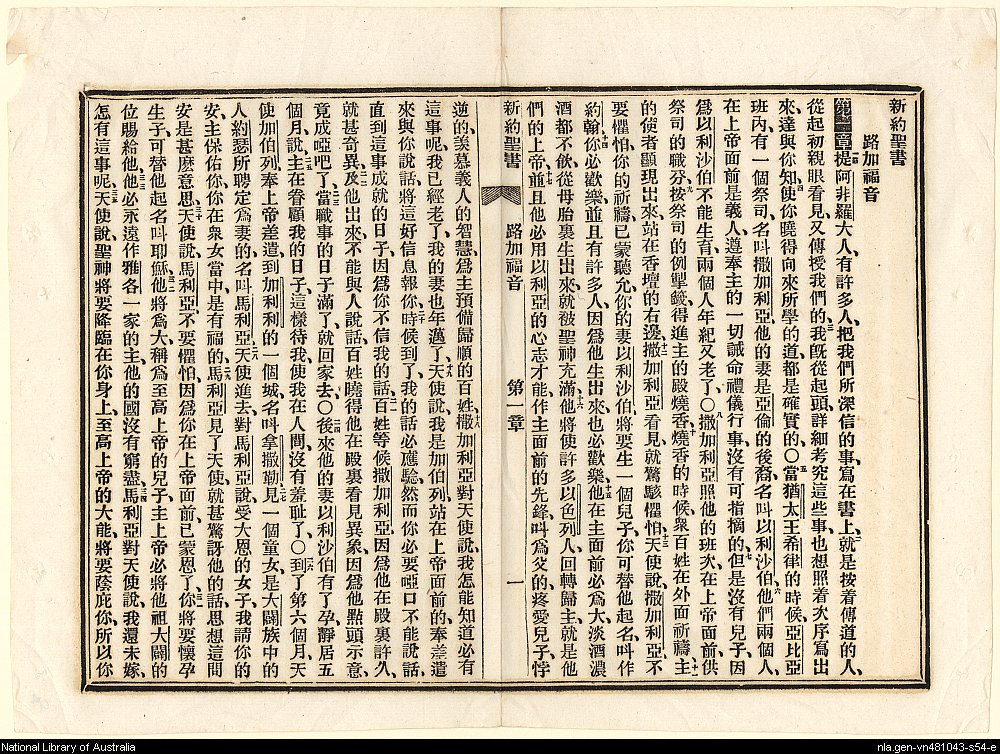 新約聖書
路加福音
第一章提阿非羅大人、有許多人、把我們所深信的事、寫在書上、就是按着傳道的人、
從起初親眼看見、又傳授我們的、我旣從起頭詳細考究這些事、也想照着次序寫出
來、達與你知、使你曉得向來所學的道、都是確實的、〇當猶太王希律的時候、亞比亞
班內有一個祭司、名叫撒加利亞、他的妻是亞倫的後裔、名叫以利沙伯、他們兩個人、
在上帝面前是義人、遵奉主的一切誡命禮儀行事、沒有可指摘的、但是沒有兒子、因
爲以利沙伯不能生育、兩個人年紀又老了、〇撒加利亞照他的班次、在上帝面前、供
祭司的職分、按祭司的例掣籤、得進主的殿燒香、燒香的時候、衆百姓在外面祈禱、主
的使者顯現出來、站在香壇的右邊、撒加利亞看見、就驚駭懼怕、天使說、撒加利亞不
要懼怕、你的祈禱、已蒙聽允、你的妻以利沙伯、將要生一個兒子、你可替他起名叫作
約翰、你必歡樂、並且有許多人、因爲他生出來、也必歡樂、他在主面前必爲大、淡酒濃
酒都不飲、從母胎裏生出來、就被聖神充滿、他將使許多以色列人、回轉歸主、就是他
們的上帝、並且他必用以利亞的心志才能、作主面前的先鋒、叫爲父的疼愛兒子、悖
新約聖書 路加福音 第一章 一
逆的、羡慕義人的智慧、爲主預備歸順的百姓、撒加利亞對天使說、我怎能知道必有
這事呢、我已經老了、我的妻也年邁了、天使說、我是加伯列、站在上帝面前的、奉差遣
來與你說話、將這好信息報你、時候到了、我的話必應驗、然而你必要啞口不能說話、
直到這事成就的日子、因爲你不信我的話、百姓等候撒加利亞、因爲他在殿裏許久、
就甚奇異、及他出來、不能與人說話、百姓曉得他在殿裏看見異象、因爲他點頭示意、
竟成啞吧了、當職事的日子滿了、就回家去、〇後來他的妻以利沙伯有了孕、靜居五
個月、說、主在眷顧我的日子、這樣待我、使我在人間、沒有羞恥了、〇到了第六個月、天
使加伯列奉上帝差遣、到加利利的一個城、名叫拿撒勒、見一個童女、是大闢族中的
人、約瑟所聘定爲妻的、名叫馬利亞、天使進去、對馬利亞說、受大恩的女子、我請你的
安、主保佑你、你在衆女當中是有福的、馬利亞見了天使、就甚驚訝他的話、思想這問
安是甚麽意思、天使說、馬利亞、不要懼怕、因爲你在上帝面前、已蒙恩了、你將要懷孕
生子、可替他起名叫耶穌、他將爲大、稱爲至高上帝的兒子、主上帝必將他祖大闢的
位賜給他、他必永遠作雅各一家的主、他的國沒有窮盡、馬利亞對天使說、我還未嫁、
怎有這事呢、天使說、聖神將要降臨在你身上、至高上帝的大能、將要蔭庇你、所以你
National Library of Australia
nla.gen-vn481043-s54-e